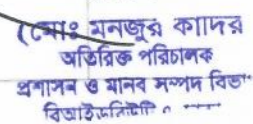 (মোঃ মনজুর কাদির
অতিরিক্ত পরিচালক
প্রশাসন ও মানব সম্পদ বিভা